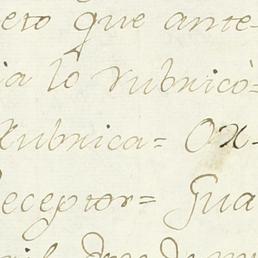 eto que ante-
ia lo rubricò=
Rubrica= Ox-
Receptor= Gua